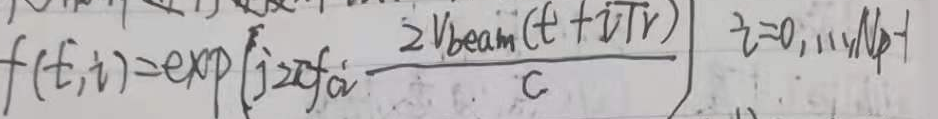 f(t,i)=exp[j2πfci 2Vbeam(t+iTr)/C] i=0,...,Np-1